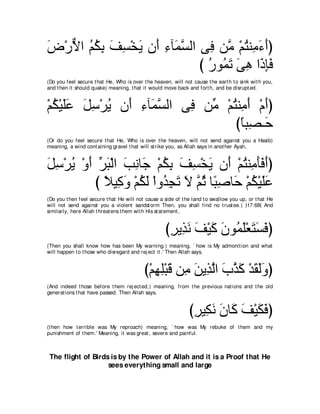 أَءَمِنْتُمْ مَّن فِى السَّمَآءِ أَن يَخْسِفَ بِكُمُ الاٌّرْضَ
فَإِذَا هِىَ تَمُورُ )
(Do you feel secure that He, Who is over the heaven, will not cause the earth to sink with you,
and then it should quake) meaning, that it would move back and forth, and be disrupted.
أَمْ أَمِنتُمْ مِّن فِى السَّمَآءِ أَن يُرْسِلَ عَلَيْكُمْ
حَـصِباً)
(Or do you feel secure that He, Who is over the heaven, will not send against you a Hasib)
meaning, a wind containing gravel that will strike you, as Allah says in another Ayah,
(أَفَأَمِنتُمْ أَن يَخْسِفَ بِكُمْ جَانِبَ الْبَرِّ أَوْ يُرْسِلَ
عَلَيْكُمْ حَاصِبًا ثُمَّ لاَ تَجِدُواْ لَكُمْ وَكِيلاً )
(Do you then feel secure that He will not cause a side of the land to swallow you up, or that He
will not send against you a violent sandstorm Then, you shall find no trustee.) (17:68) And
similarly, here Allah threatens them with His statement,
(فَسَتَعْلَمُونَ كَيْفَ نَذِيرِ)
(Then you shall know how has been My warning.) meaning, `how is My admonition and what
will happen to those who disregard and reject it.' Then Allah says,
(وَلَقَدْ كَذَّبَ الَّذِينَ مِن قَبْلِهِمْ)
(And indeed those before them rejected,) meaning, from the previous nations and the old
generations that have passed. Then Allah says,
(فَكَيْفَ كَانَ نَكِيرِ)
(then how terrible was My reproach) meaning, `how was My rebuke of them and my
punishment of them.' Meaning, it was great, severe and painful.
The flight of Birds is by the Power of Allah and it is a Proof that He
sees everything small and large